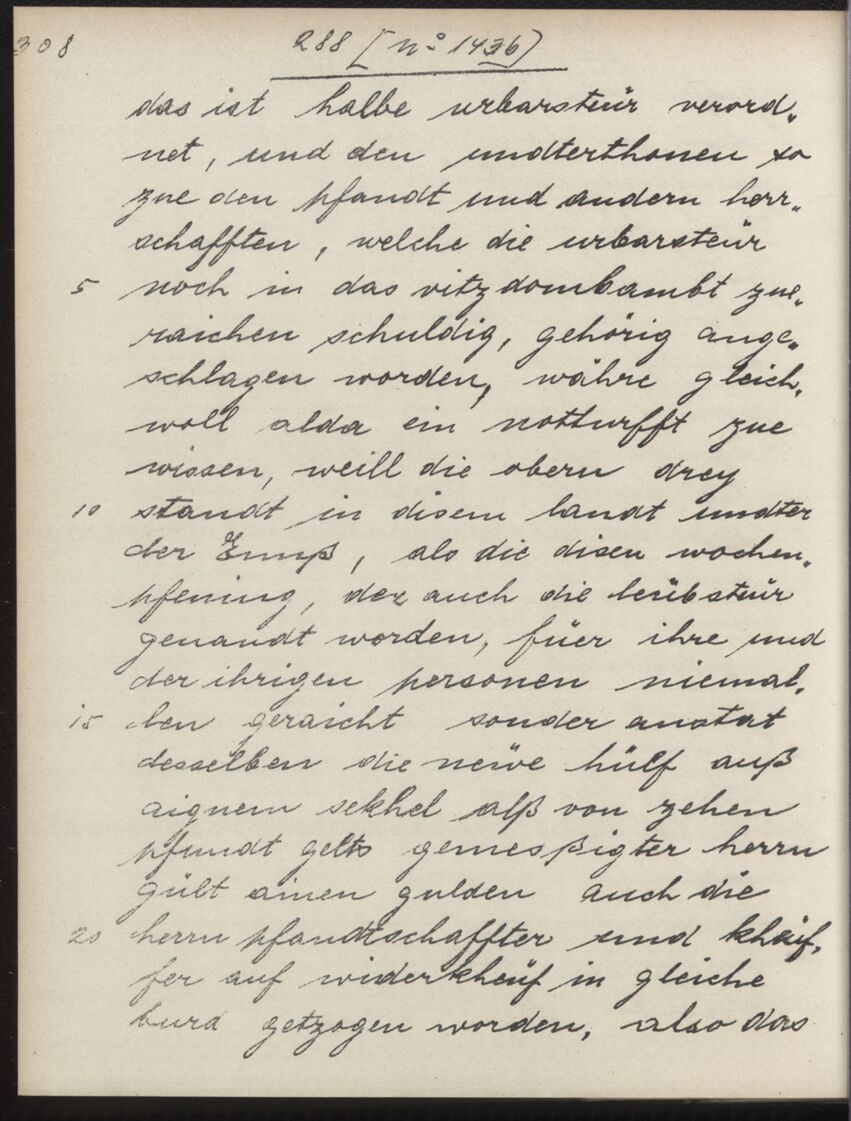 308
288 [No 1436)
das ist halbe urbarsteür verord„
net, und den undterthonen so
zue den pfandt und andern herr„
schafften, welche die urbarsteür
5 noch in das vitzdombambt zue„
raichen schuldig, gehörig ange„
schlagen worden, währe gleich„
woll alda ein notturfft zue
wissen, weill die obern drey
10 standt in disem landt undter
der Ennß, als die disen wochen„
pfening, der auch die leübsteür
genandt worden, füer ihre und
der ihrigen personen niemal„
15 len geraicht sonder anstat
desselben die neüe hülf auß
aignem sekhel alß von zehen
pfundt gelts gemeßigter herrn
gült ainen gulden auch die
20 herrn pfandtschaffter und kheüf„
fer auf widerkheüf in gleiche
burd getzogen worden, also das